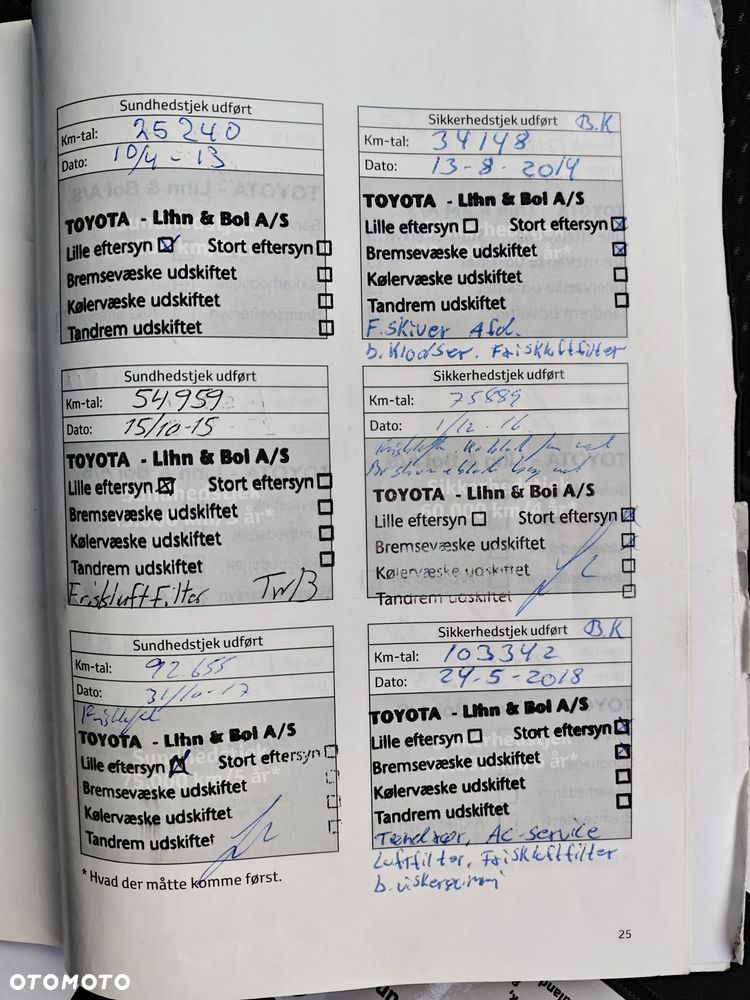 Sundhedstjek udført
Km-tal: 25240
Dato: 10/4-13
TOYOTA - Lihn & Boi A/S
Lille eftersyn Stort eftersyn
Bremsevæske udskiftet
Kølervæske udskiftet
Tandrem udskiftet
Sikkerhedstjek udført B.K
Km-tal: 34148
Dato: 13-8-2014
TOYOTA - Lihn & Boi A/S
Lille eftersyn Stort eftersyn
Bremsevæske udskiftet
Kølervæske udskiftet
Tandrem udskiftet
F.skiver Afd.
b. Klodser. Friskluftfilter
Sundhedstjek udført
Km-tal: 54959
Dato: 15/10-15
TOYOTA - Lihn & Boi A/S
Lille eftersyn Stort eftersyn
Bremsevæske udskiftet
Kølervæske udskiftet
Tandrem udskiftet
Friskluftfilter
Sikkerhedstjek udført
Km-tal: 75889
Dato: 1/12-16
TOYOTA - Lihn & Boi A/S
Lille eftersyn Stort eftersyn
Bremsevæske udskiftet
Kølervæske udskiftet
Tandrem udskiftet
Sundhedstjek udført
Km-tal: 92.655
Dato: 31/10-17
TOYOTA - Lihn & Boi A/S
Lille eftersyn Stort eftersyn
Bremsevæske udskiftet
Kølervæske udskiftet
Tandrem udskiftet
Sikkerhedstjek udført B.K
Km-tal: 103342
Dato: 24-5-2018
TOYOTA - Lihn & Boi A/S
Lille eftersyn Stort eftersyn
Bremsevæske udskiftet
Kølervæske udskiftet
Tandrem udskiftet
Tændrør, AC-service
Luftfilter, Friskluftfilter
b. viskergummi
* Hvad der måtte komme først.
25
OTOMOTO